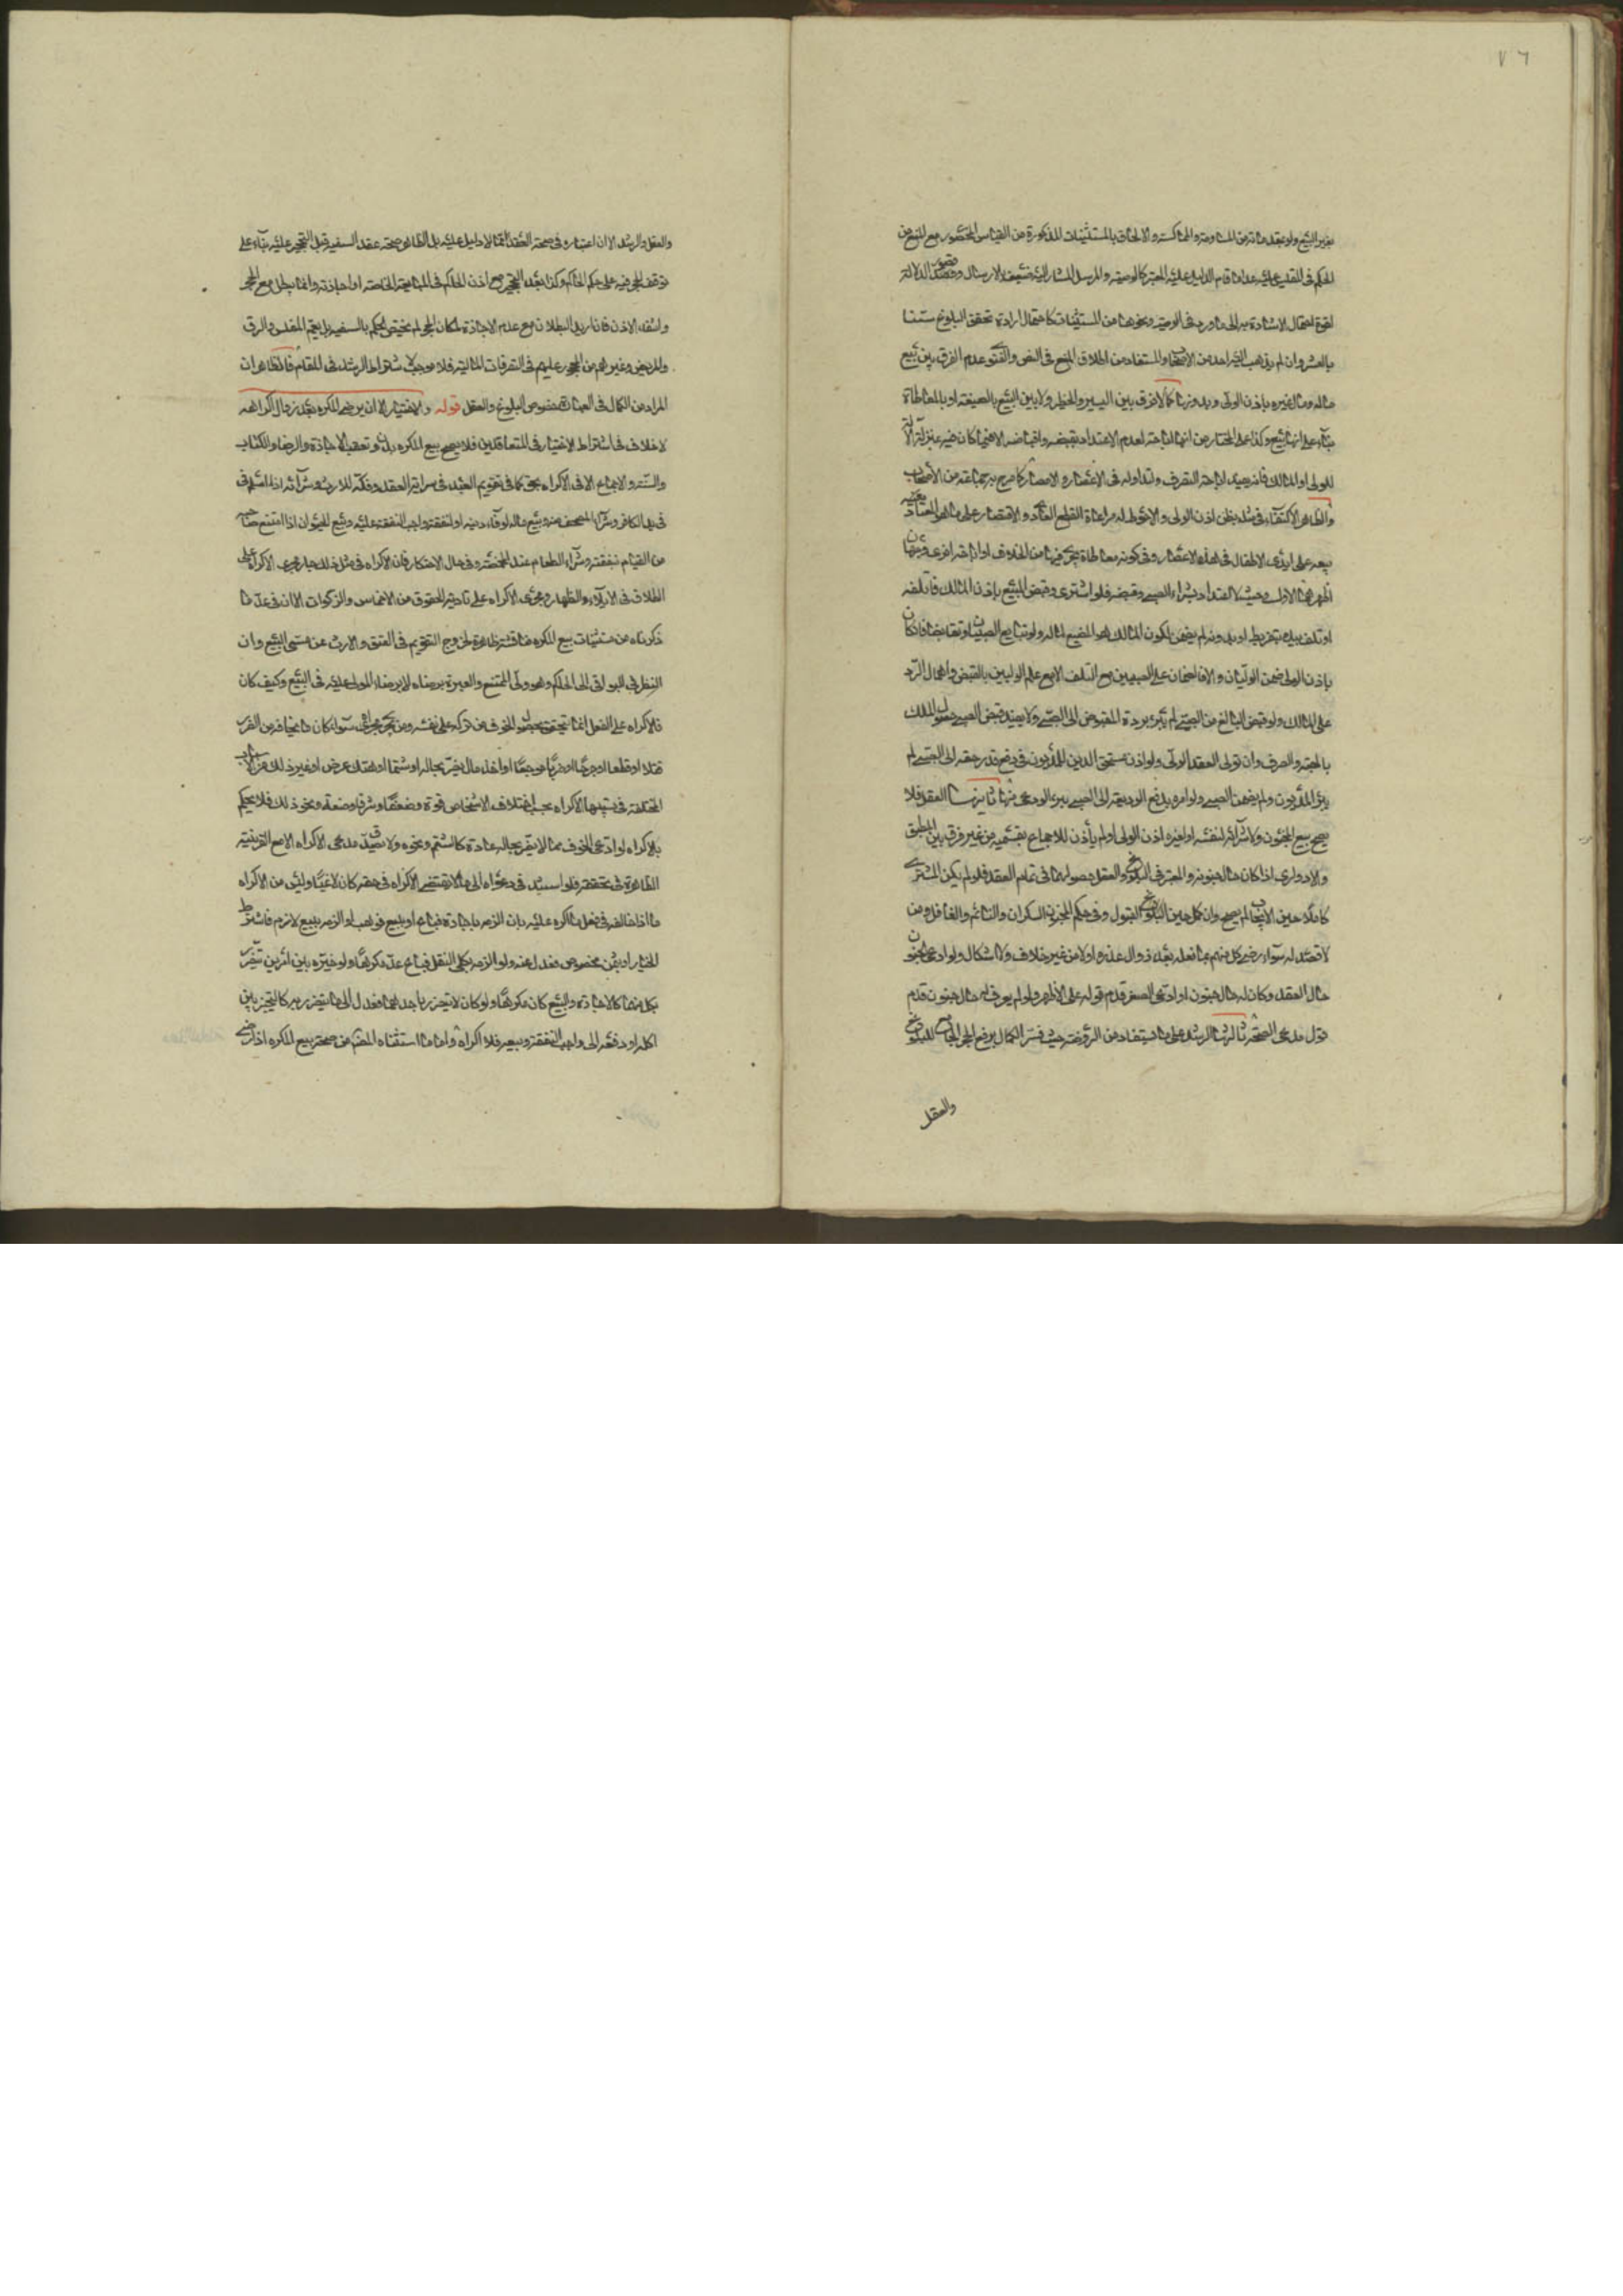 ٧٦
بغير البيع ولو بعقد مثاثرته المساومة والمماكسة والالحاق بالمستثنيات المذكورة من القياس المحظور مع المنع من
الحكم في المقيس عليه عدا ما قام الدليل عليه المعتبر كالوصية والمرسل المشار اليه ضعيف بالارسال وقصور الدلالة
لقوة احتمال الاشارة به الى ما ورد في الوصية ونحوها من المستثنيات كاحتمال ارادة تحقق البلوغ ستنا
بالعشر وان لم يذهب اليه احد من الاصحاب والمستفاد من اطلاق المنع في النص والفتوى عدم الفرق بين بيع
ماله ومال غيره باذن الولي وبدونها كما لا فرق بين اليسير والخطير ولا بين البيع بالصيغة او بالمعاطاة
بناء على انها بيع وكذا على المختار من انها اباحة لعدم الاعتداد بقبضه واقباضه الا فيما كان فيه بمنزلة الآلة
للولي او المالك فانه يفيد اباحة التصرف ولتداوله في الاعصار والامصار كما صرح به جماعة من الأصحاب
والظاهر الاكتفاء في مثله بظن اذن الولي والاحوط له مراعاة القطع العادي والاقتصار على ما هو المعتاد
بيعه على ايدي الاطفال في هذه الاعصار وفي كونه معاطاة يجري فيها من الخلاف او اباحة اخرى وجهان
اظهرهما الاول وحيث لا اعتداد بشراء الصبي وقبضه فلو اشترى وقبض المبيع باذن المالك فاتلفه
او تلف بيده بتفريط او بدونه لم يضمن لكون المالك هو المضيع لماله ولو تبايع الصبيان وتقابضا فان كان
باذن الولي ضمن الوليان والا فالضمان على الصبيين مع التلف الا مع علم الوليين بالقبض واهمال الرد
على المالك ولو قبض البالغ من الصبي لم يبرء برده المقبوض الى الصبي ولا يفيد قبض الصبي حصول الملك
بالهبة والصرف وان تولى العقد الولي ولو اذن مستحق الدين للمديون في دفع قدر حقه الى الصبي لم
يبرء المديون ولم يضمن الصبي ولو امره بدفع الوديعة الى الصبي برء الودعي منها ثانيها العقل فلا
يصح بيع المجنون ولا شرائه لنفسه او لغيره اذن الولي او لم يأذن للاجماع بقسميه من غير فرق بين المطبق
والادواري اذا كان حال جنونه والمعتبر في البلوغ والعقل حصولهما في تمام العقد فلو لم يكن المشتري
كاملا حين الايجاب لم يصح وان كمل حين القبول وفي حكم المجنون السكران والنائم والغافل ومن
لا قصد له سواء رضي كل منهم بما فعله بعد زوال عذره او لا من غير خلاف ولا اشكال ولو ادعى الجنون
حال العقد وكان له حال جنون او ادعى الصغر قدم قوله على الاظهر ولو لم يعرف له حال جنون قدم
قول مدعي الصحة ثالثها الرشد على ما يستفاد من الروضة حيث فسر الكمال برفع الحجر الجامع للبلوغ
والعقل
والعقل والرشد الا ان اعتباره في صحة العقد مما لا دليل عليه بل الظاهر صحة عقد السفيه قبل التحجير عليه بناء على
توقف الحجر فيه على حكم الحاكم وكذا بعد التحجير مع اذن الحاكم في المبايعة الخاصة او اجازته وانما يبطل مع الحجر
وانتفاء الاذن فان اريد البطلان مع عدم الاجازة لمكان الحجر لم يختص الحكم بالسفيه بل يعم المفلس والرق
والمريض وغيرهم من المحجور عليهم في التصرفات المالية فلا موجب لاشتراط الرشد في المقام فالظاهر ان
المراد من الكمال في العبارة خصوص البلوغ والعقل قوله والاختيار الا ان يرضى المكره بعد زوال اكراهه
لا خلاف في اشتراط الاختيار في المتعاقدين فلا يصح بيع المكره بدون تعقب الاجازة والرضا والكتاب
والسنة والاجماع الا في الاكراه بحق كما في تقويم العبد في سراية العقد وفكه للارث وشرآئه اذا اسلم في
يد الكافر وشراء المصحف منه وبيع ماله لوفاء دينه او لنفقة واجب النفقة عليه وبيع الحيوان اذا امتنع صاحبه
من القيام بنفقته وشراء الطعام عند المخمصة وفي حال الاحتكار فان الاكراه في مثل ذلك جار مجرى الاكراه على
الطلاق في الايلاء والظهار ومجرى الاكراه على تأدية الحقوق من الاخماس والزكوات الا ان في عد ما
ذكرناه من مستثنيات بيع المكره مناقشة ظاهرة لخروج التقويم في العتق والارث عن مسمى البيع وان
النظر في البواقي الى الحاكم وهو ولي الممتنع والعبرة برضاه لا برضاء المولى عليه في البيع وكيف كان
فالاكراه على الفعل انما يتحقق بحصول الخوف من تركه على نفسه ومن يجري مجراها سواء كان ما يخافه من الضرر
قتلا او قطعا او جرحا او ضربا موجعا او اخذ مال يضر بحاله او شتما او هتك عرض او غير ذلك من الاسباب
المختلفة في تسبيبها الاكراه بحسب اختلاف الاشخاص قوة وضعفا وشرفا وضعة ونحو ذلك فلا يحكم
بالاكراه لو ادعى الخوف مما لا يضر بحاله عادة كالشتم ونحوه ولا يصدق مدعي الاكراه الا مع القرينة
الظاهرة في تحققه فلو استند في دعواه الى ما لا يقتضي الاكراه في حقه كان لاغيا وليس من الاكراه
ما اذا خالف في فعل ما اكره عليه بان الزمه باجارة فباع او ببيع فوهب او الزمه ببيع لازم فاشترط
الخيار او بثمن مخصوص فعدل عنه ولو الزمه بكلي النقل فباع عد مكرها ولو خيره بين امرين تضرر
بكل منهما كالاجارة والبيع كان مكرها ولو كان لا يتضرر باحدهما فعدل الى ما يتضرر به كالتخيير بين
اكله او دفعه الى واجب النفقة وبيعه فلا اكراه واما ما استثناه المصنف من صحة بيع المكره اذا رضي